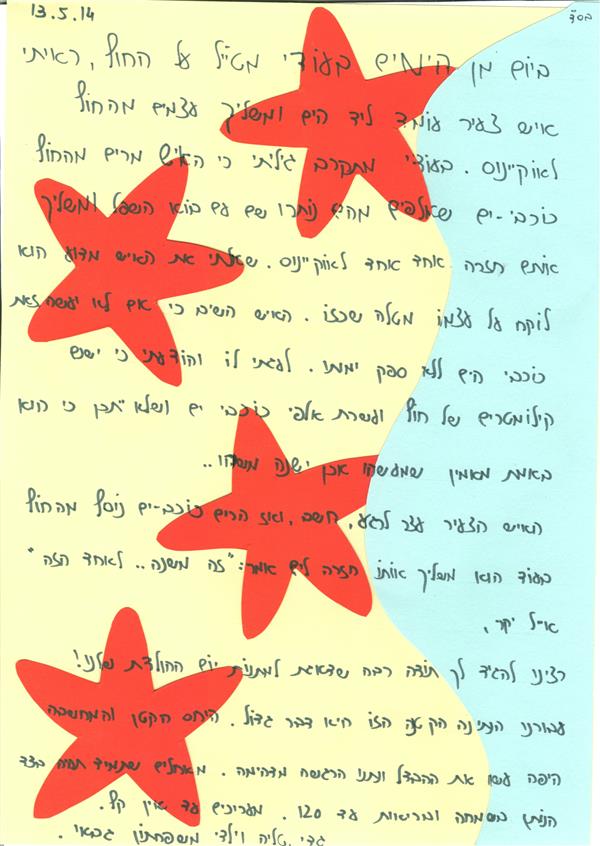 13.5.14
בסד
ביום מן הימים בעודי מטייל על החוף, ראיתי
איש צעיר עומד ליד הים ומשליך עצמים מהחוף
לאוקיינוס. בעודי מתקרב גיליתי כי האיש מרים מהחוף
כוכבי-ים שאלפים מהם נותרו שם עם בוא השפל ומשליך
אותם חזרה אחד אחד לאוקיינוס. שאלתי את האיש מדוע הוא
לוקח על עצמו מטלה שכזו. האיש השיב כי אם לא יעשה זאת
כוכבי הים ללא ספק ימותו. לעגתי לו והודעתי כי ישנם
קילומטרים של חוף ועשרת אלפי כוכבי ים ושלא יתכן כי הוא
באמת מאמין שמעשהו אכן ישנה משהו..
האיש הצעיר עצר לרגע, חשב, ואז הרים כוכב-ים נוסף מהחוף
בעוד הוא משליך אותו חזרה לים אמר: "זה משנה.. לאחד הזה"
אייל יקר,
רצינו להגיד לך תודה רבה שדאגת למתנות יום ההולדת שלנו!
עבורנו הנתינה הקטנה הזו היא דבר גדול. היחס הקטן והמחשבה
היפה עשו את ההבדל ונתנו הרגשה מדהימה. מאחלים שתמיד תהיה בצד
הנותן בשמחה ובבריאות עד 120. מעריכים עד אין קץ.
גדי, טליה וילדי משפחתון גבאי.